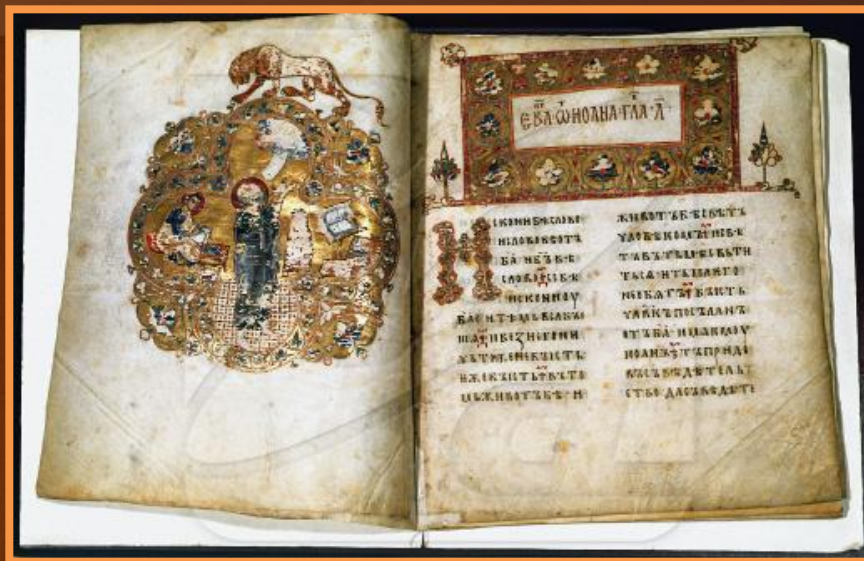 ЕВА ѾИОАНА ГЛА А
ИСКОНИ БѢ СЛОВО
И СЛОВО БѢ ОТЪ
БА И БЪ БѢ
СЛОВО СЕ БѢ
ИСКОНИ ОУ
БА И ТѢМЬ ВЬСꙖ БЫ
ШѦ И БЕЗ НЕГО НИ
ЧЬТОЖЕ НЕ БЫСТЬ
ѤЖЕ БЫСТЬ ВЪ ТО
МЬ ЖИВОТЪ БѢ И
ЖИВОТЪ БѢ СВѢТЪ
ЧЛОВѢКОМЪ И СВѢ
ТЪ ВЪ ТЬМѢ СВЬТИ
ТЬСѦ И ТЬМА ѤГО
НЕ ОБѦТЪ БЫСТЬ
ЧЛВКЪ ПОСЪЛАНЪ
ОТЪ БА ИМѦ ѤМОУ
ИОАНЪ ТЪ ПРИДЕ
ВЪ СЪВѢДѢТЕЛЬ
СТВО ДА СЪВѢДѢТЕ